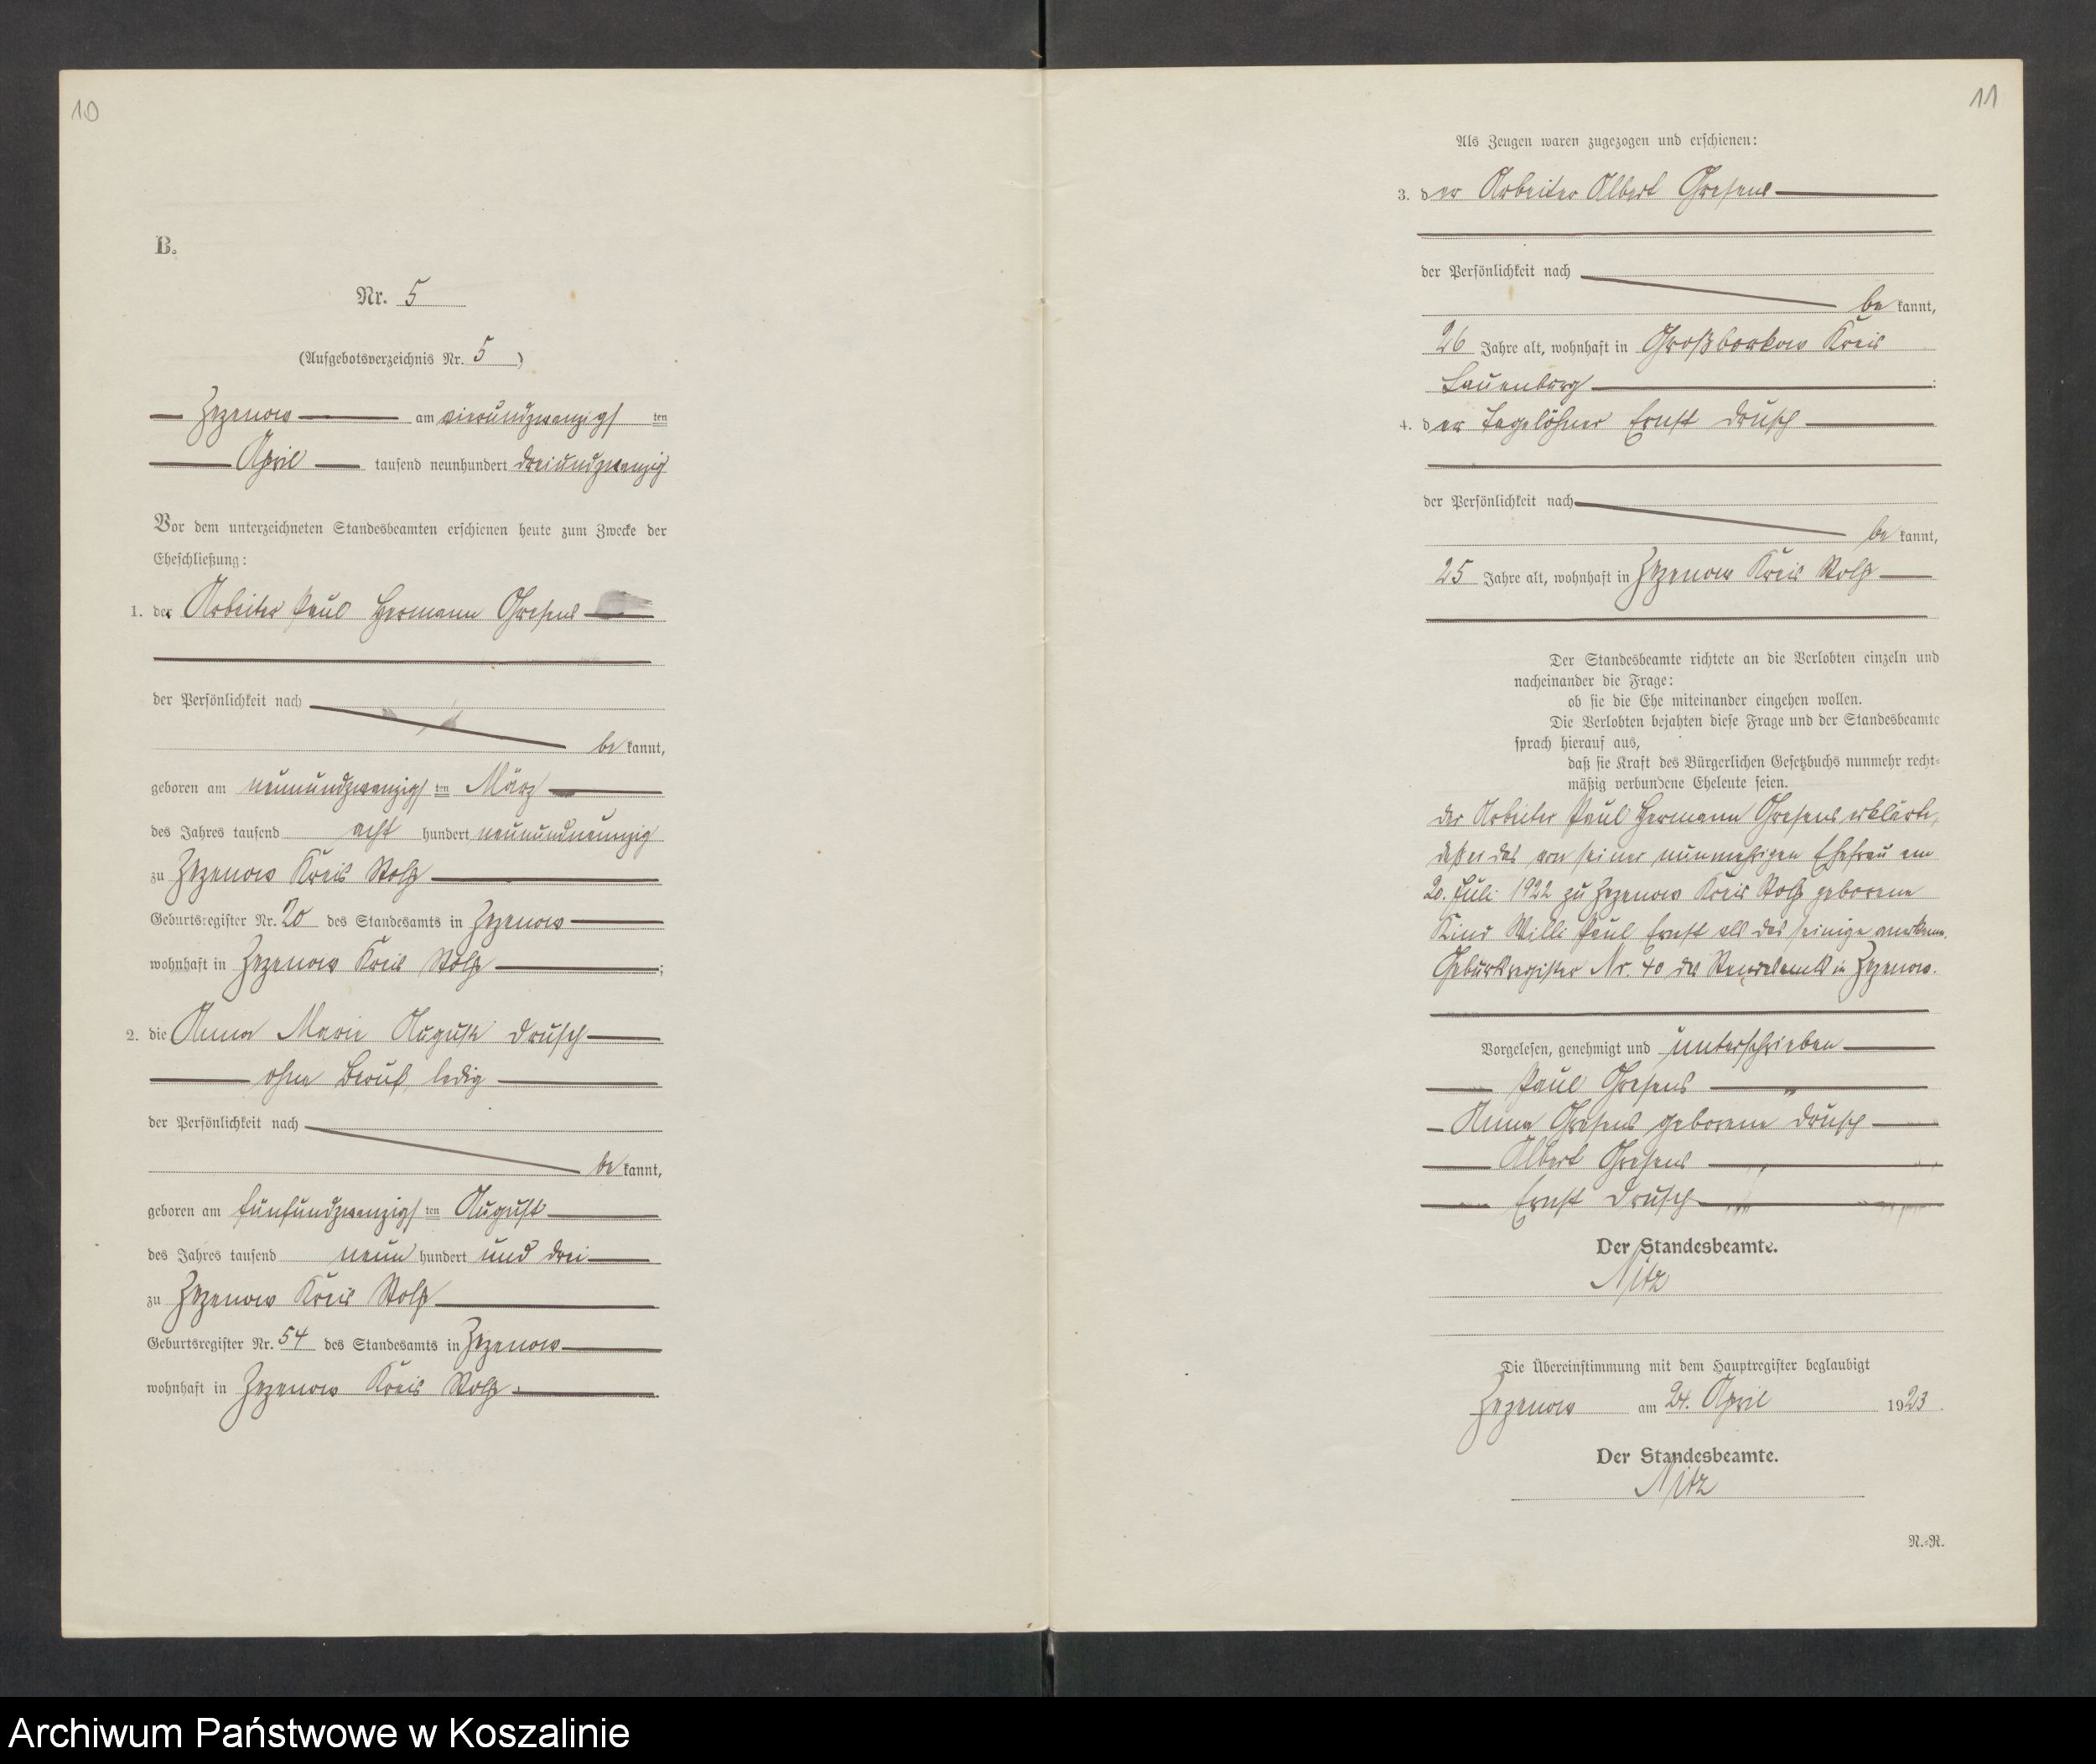 10
B.
Nr. 5
(Aufgebotsverzeichnis Nr. 5)
Zezenow am vierundzwanzigsten
April tausend neunhundert dreiundzwanzig
Vor dem unterzeichneten Standesbeamten erschienen heute zum Zwecke der
Eheschließung:
1. der Arbeiter Paul Hermann Gresens
der Persönlichkeit nach
bekannt,
geboren am neunundzwanzigsten März
des Jahres tausend acht hundert neunundneunzig
zu Zezenow Kreis Stolp
Geburtsregister Nr. 20 des Standesamts in Zezenow
wohnhaft in Zezenow Kreis Stolp;
2. die Anna Marie Auguste Drusch
ohne Beruf, ledig
der Persönlichkeit nach
bekannt,
geboren am fünfundzwanzigsten August
des Jahres tausend neun hundert und drei
zu Zezenow Kreis Stolp
Geburtsregister Nr. 54 des Standesamts in Zezenow
wohnhaft in Zezenow Kreis Stolp.
11
Als Zeugen waren zugezogen und erschienen:
3. der Arbeiter Albert Gresens
der Persönlichkeit nach
bekannt,
26 Jahre alt, wohnhaft in Großborkow Kreis
Lauenburg;
4. der Tagelöhner Ernst Drusch
der Persönlichkeit nach
bekannt,
25 Jahre alt, wohnhaft in Zezenow Kreis Stolp
Der Standesbeamte richtete an die Verlobten einzeln und
nacheinander die Frage:
ob sie die Ehe miteinander eingehen wollen.
Die Verlobten bejahten diese Frage und der Standesbeamte
sprach hierauf aus,
daß sie Kraft des Bürgerlichen Gesetzbuchs nunmehr recht-
mäßig verbundene Eheleute seien.
Der Arbeiter Paul Hermann Gresens erklärte,
daß er das von seiner nunmehrigen Ehefrau am
20. Juli 1922 zu Zezenow Kreis Stolp geborene
Kind Willi Paul Ernst als das seinige anerkenne.
Geburtsregister Nr. 40 des Standesamts in Zezenow.
Vorgelesen, genehmigt und unterschrieben
Paul Gresens
Anna Gresens geborene Drusch
Albert Gresens
Ernst Drusch
Der Standesbeamte.
Nitz
Die Übereinstimmung mit dem Hauptregister beglaubigt
Zezenow am 24. April 1923.
Der Standesbeamte.
Nitz
N.-R.
Archiwum Państwowe w Koszalinie